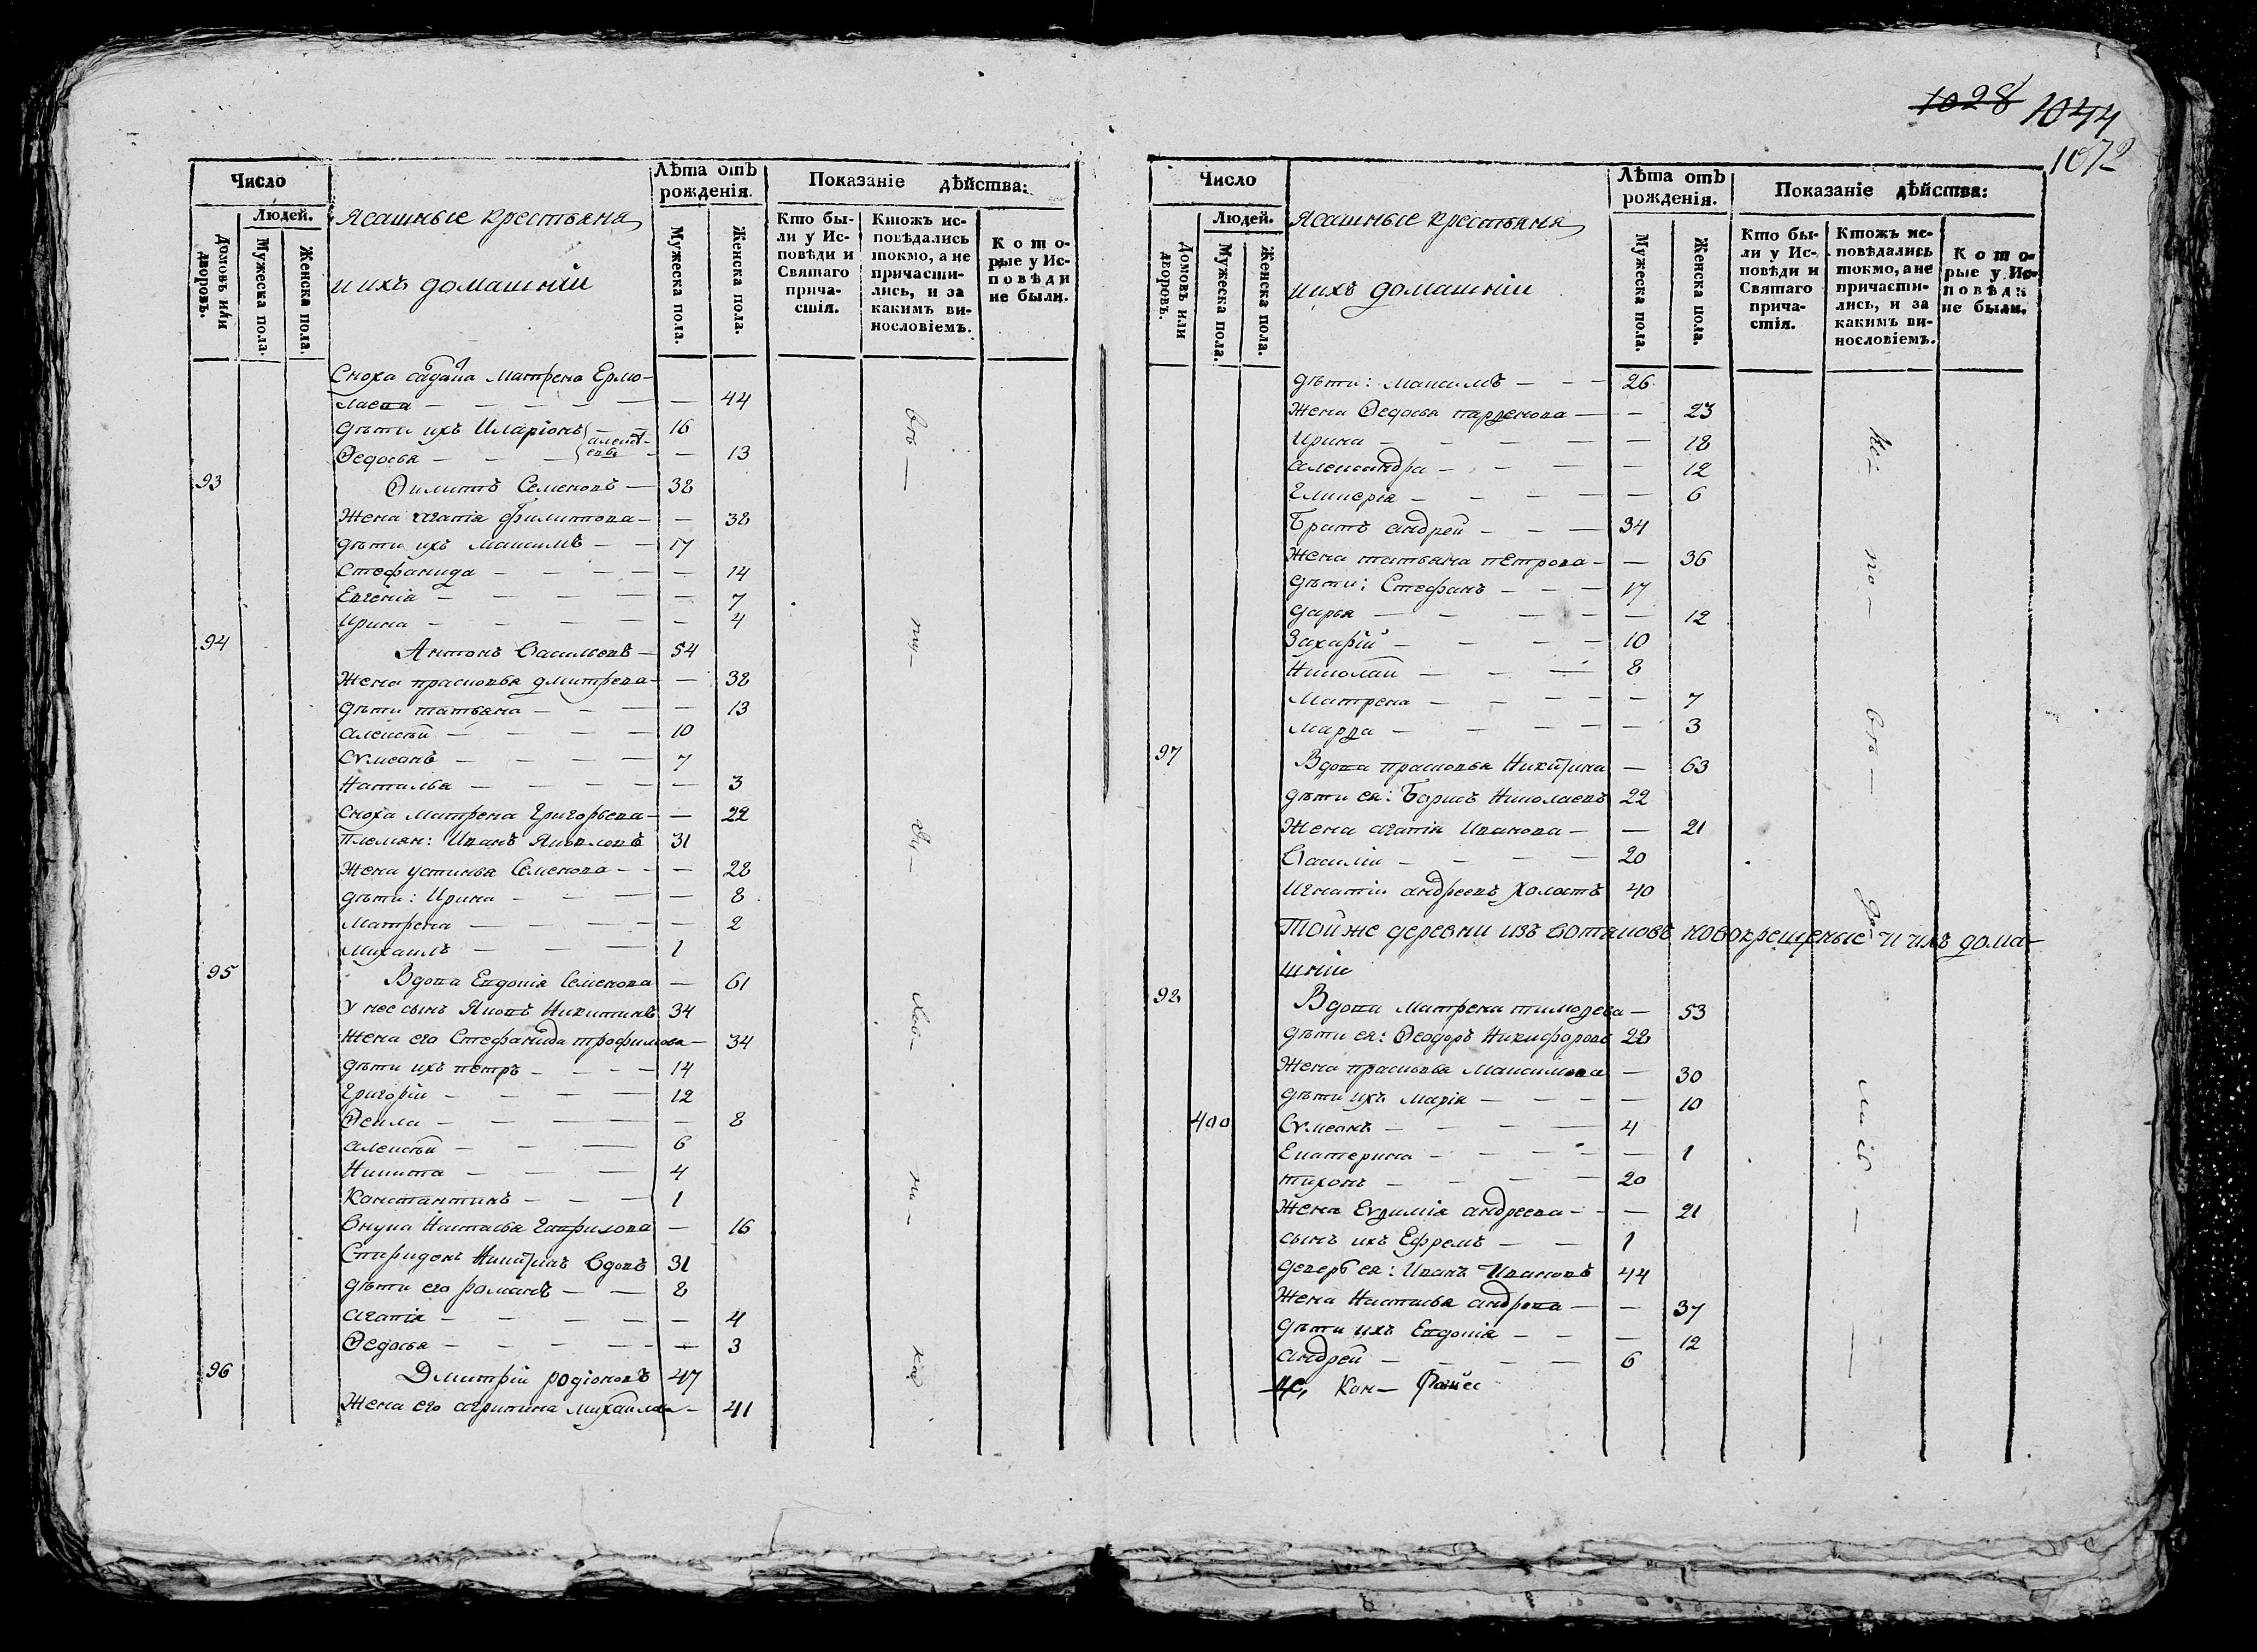 1028 1044
1072
Число
Людей.
Домовъ или дворовъ.
Мужеска пола.
Женска пола.
Ясашные крестьяня
и ихъ домашнiи
Лѣта отъ рожденiя.
Мужеска пола.
Женска пола.
Показанiе дѣйства:
Кто бы-
ли у Ис-
повѣди и
Святаго
прича-
стiя.
Ктожъ ис-
повѣдались
токмо, а не
причасти-
лись, и за
какимъ ви-
нословiемъ.
Кото-
рые у Ис-
повѣди
не были.
Сноха Матрена Ермо-
лаева — 44
дѣти ихъ Иларiонъ — 16
Ѳедосья — 13
93 Филиппъ Семеновъ — 38
Жена агапiя филиппова — 38
дѣти ихъ Максимъ — 17
Стефанида — 14
Евгенiя — 7
Ирина — 4
94 Антонъ Васильевъ — 54
Жена прасковья дмитрева — 38
дѣти татьяна — 13
алексѣй — 10
Сѵмеонъ — 7
Наталья — 3
Сноха Матрена Григорьева — 22
племян: Иванъ Яковлевъ 31
Жена устинья Семенова — 28
дѣти: Ирина — 8
Матрена — 2
Михаилъ — 1
95 Вдова Евдокiя Семенова — 61
У нее сынъ Яковъ Никитинъ 34
Жена его Стефанида трофимова — 34
дѣти ихъ петръ — 14
Григорiй — 12
Ѳекла — 8
алексѣй — 6
Никита — 4
Константинъ — 1
Внука Настасья Гаврилова — 16
Спиридонъ Никитинъ вдовъ 31
дѣти его романъ — 8
агапiя — 4
Ѳедосья — 3
96 Дмитрiй родiоновъ 47
Жена его агрипина михайлова — 41
Число
Людей.
Домовъ или дворовъ.
Мужеска пола.
Женска пола.
Ясашные крестьяня
и ихъ домашнiи
Лѣта отъ рожденiя.
Мужеска пола.
Женска пола.
Показанiе дѣйства:
Кто бы-
ли у Ис-
повѣди и
Святаго
прича-
стiя.
Ктожъ ис-
повѣдались
токмо, а не
причасти-
лись, и за
какимъ ви-
нословiемъ.
Кото-
рые у Ис-
повѣди
не были.
дѣти: Максимъ — 26
Жена Ѳедосья парѳенова — 23
Ирина — 18
александра — 12
Гликерiя — 6
Братъ андрей — 34
Жена татьяна петрова — 36
дѣти: Стефанъ — 17
дарья — 12
Захарiй — 10
Николай — 8
Матрена — 7
марѳа — 3
97 Вдова прасковья Никитина — 63
дѣти ея: Борисъ Николаевъ 22
Жена агапiя Иванова — 21
Василiи — 20
Игнатiи андреевъ холостъ 40
Той же деревни изъ вотяковъ новокрещеные и ихъ дома-
шнiи
98 Вдова Матрена тимоѳева — 53
дѣти ея: Ѳеодоръ Никифоровъ 28
Жена прасковья Максимова — 30
дѣти ихъ Марiя — 10
400 Сѵмеонъ — 4
Екатерина — 1
тихонъ — 20
Жена Евѳимiя андреева — 21
сынъ ихъ Ефремъ — 1
деверь ея: Иванъ Ивановъ 44
Жена Настасья андреева — 37
дѣти ихъ Евдокiя — 12
андрей — 6